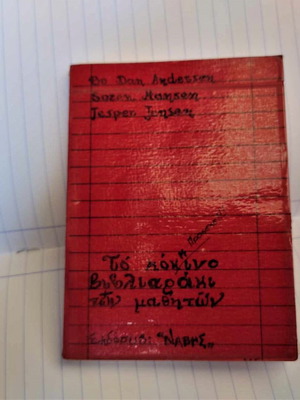 Bo Dan Andersen
Soren Hansen
Jesper Jensen
Τό κόκινο
βιβλιαράκι
τῶν μαθητῶν
"ΝΑΒΗΣ"